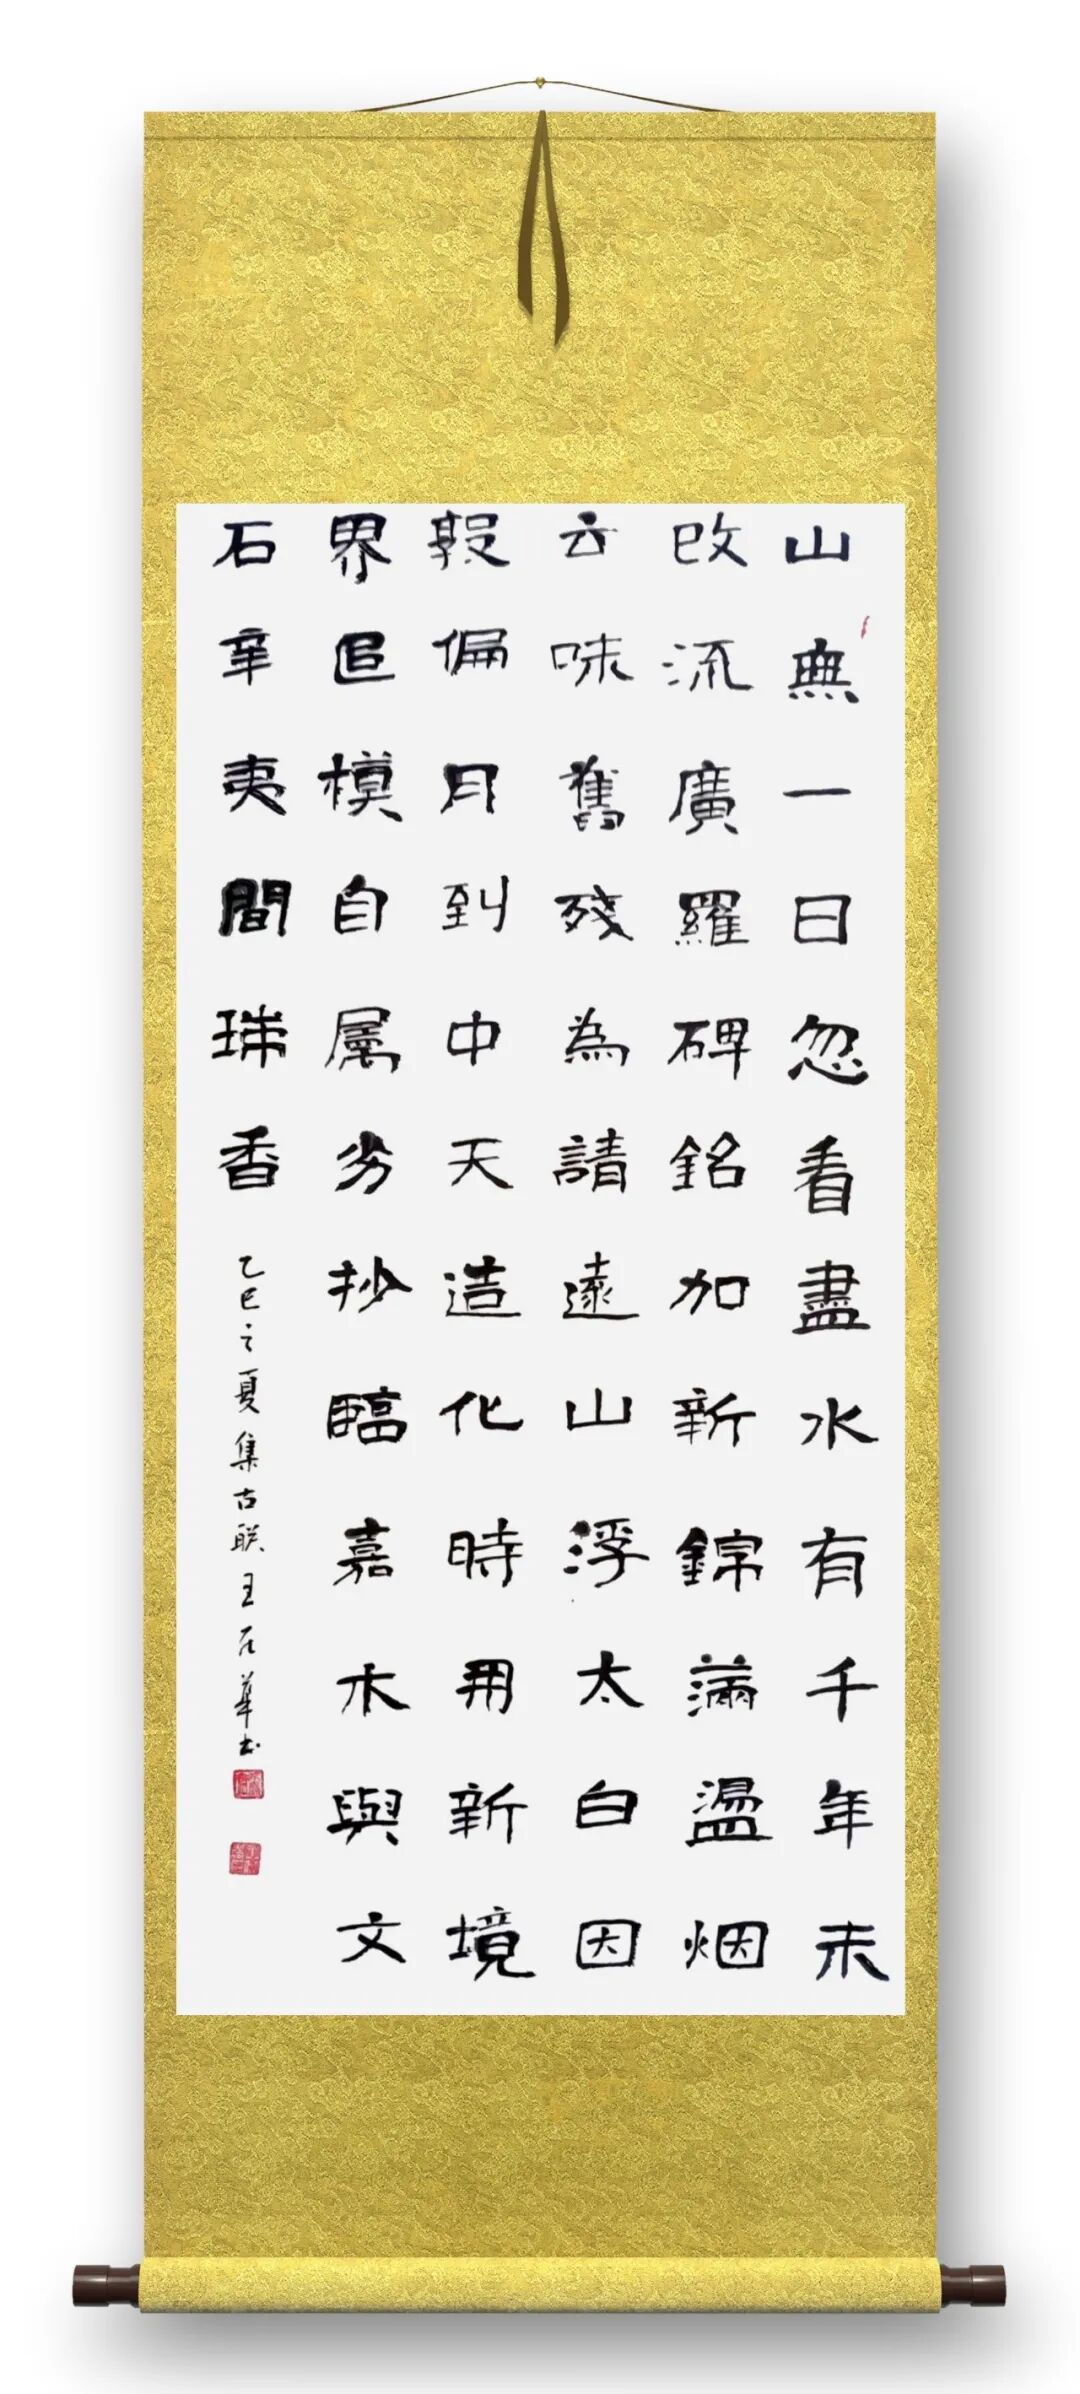 山無一日忽看盡水有千年未
改流廣羅碑銘加新錦滿盪烟
云味舊殘為請遠山浮太白因
段偏月到中天造化時用新境
界追模自属劣抄臨嘉木與文
石辛夷間瑞香
乙巳之夏集古联王石華书